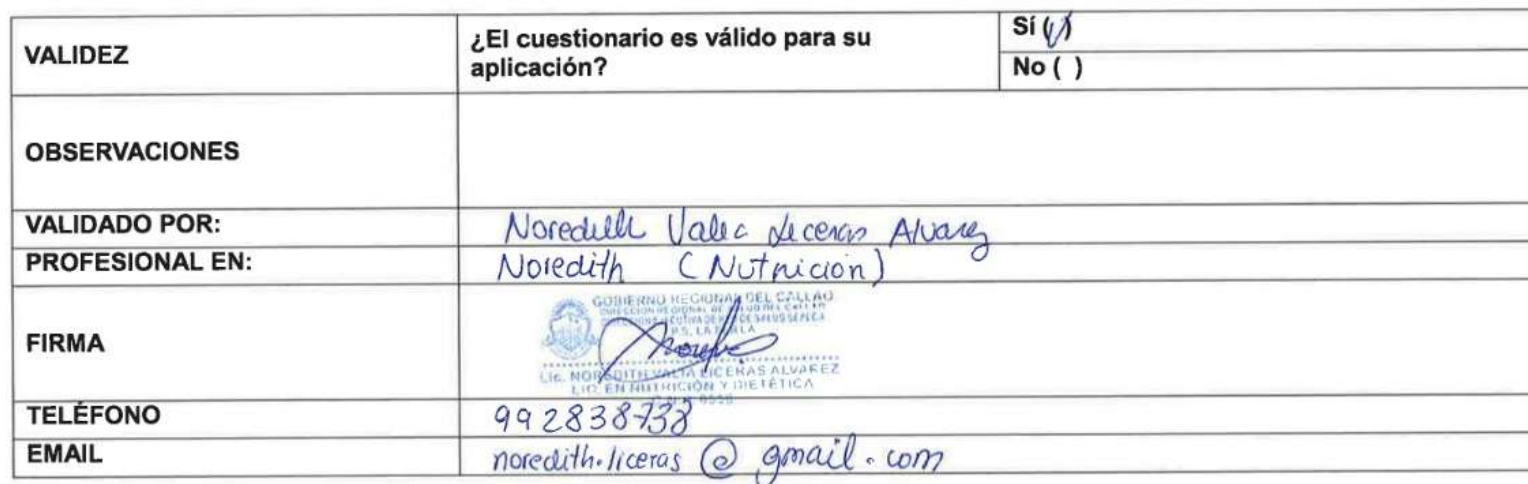 VALIDEZ
¿El cuestionario es válido para su
aplicación?
Sí (✓)
No ( )
OBSERVACIONES
VALIDADO POR:
Noredith Liceras Alvarez
PROFESIONAL EN:
Noredith (Nutrición)
FIRMA
GOBIERNO REGIONAL DEL CALLAO
DIRECCION REGIONAL DE SALUD DEL CALLAO
Lic. NOREDITH VALIA LICERAS ALVAREZ
LIC. EN NUTRICIÓN Y DIETÉTICA
TELÉFONO
992838738
EMAIL
noredith.liceras@gmail.com